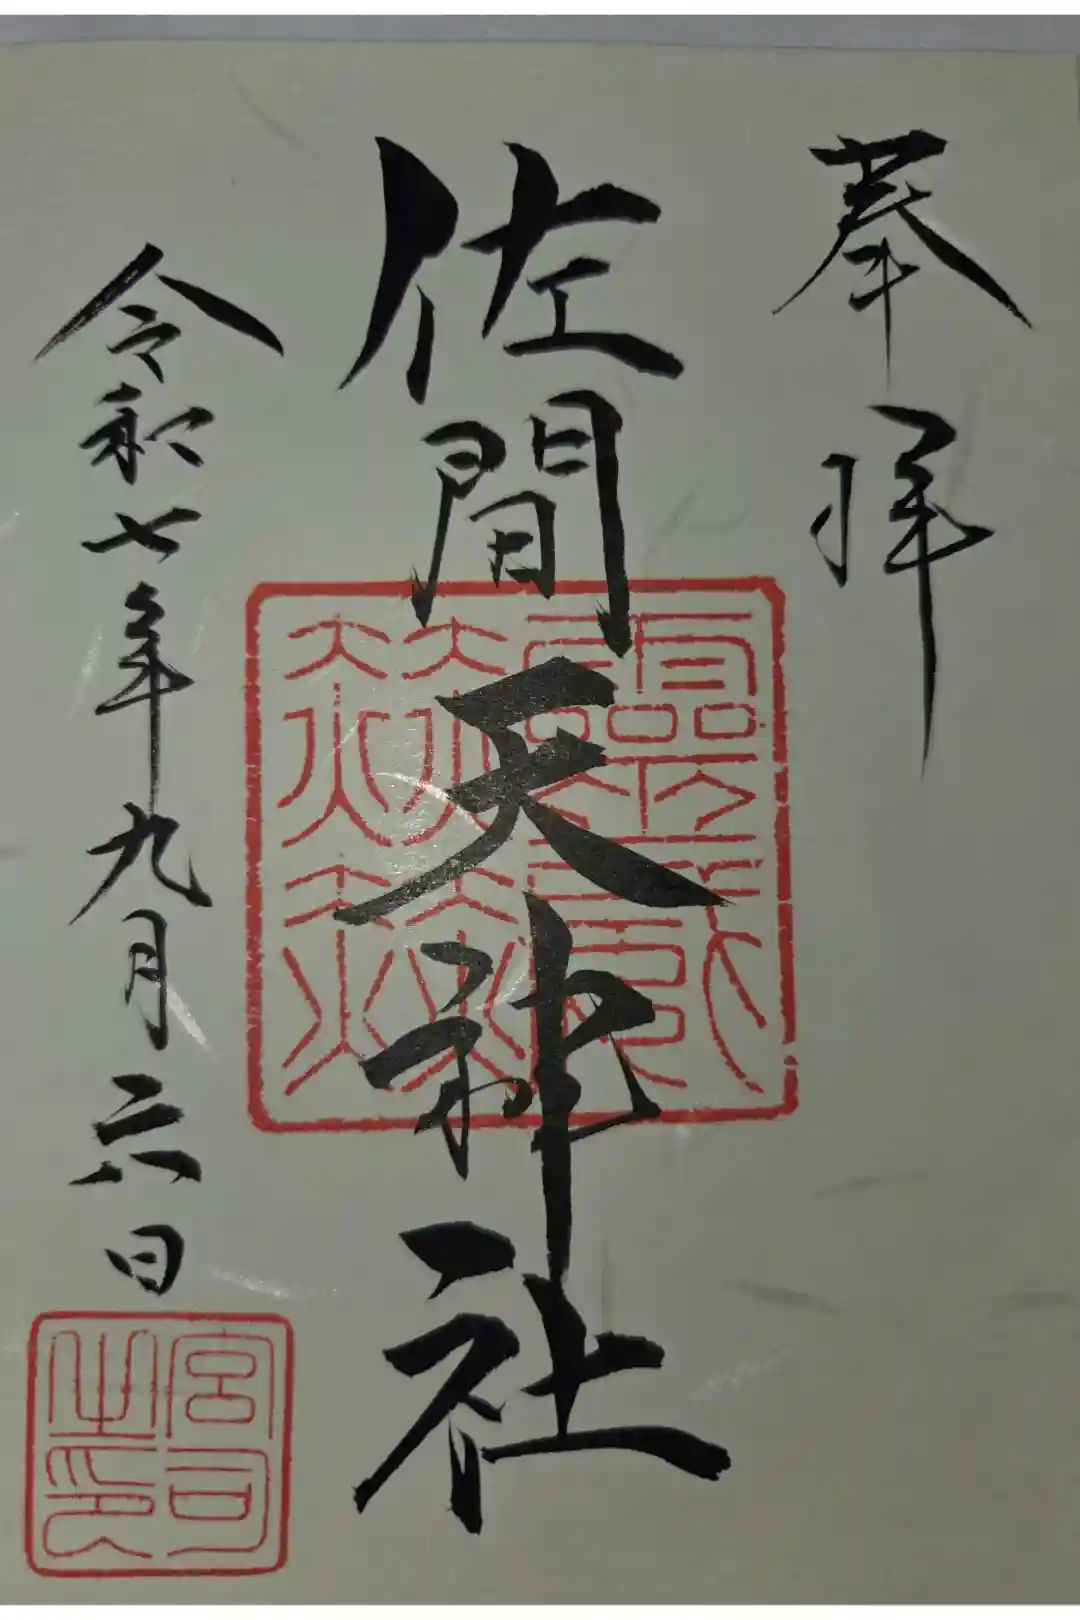 奉拝
佐間天神社
令和七年九月六日
宮司之印